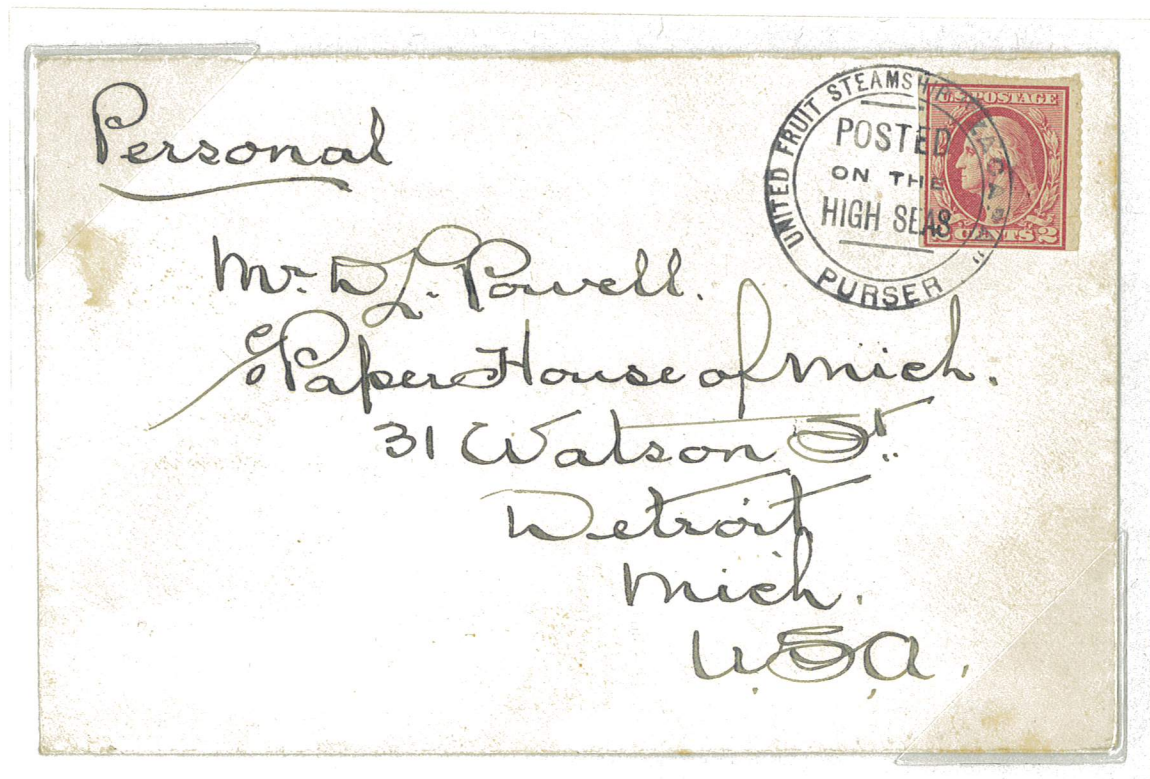 Personal
UNITED FRUIT STEAMSHIP "ZACAPA"
POSTED
ON THE
HIGH SEAS
PURSER
U.S. POSTAGE
2 CENTS 2
Mr. D L. Powell.
c/o Paper House of Mich.
31 Watson St.
Detroit
Mich.
U.S.A.